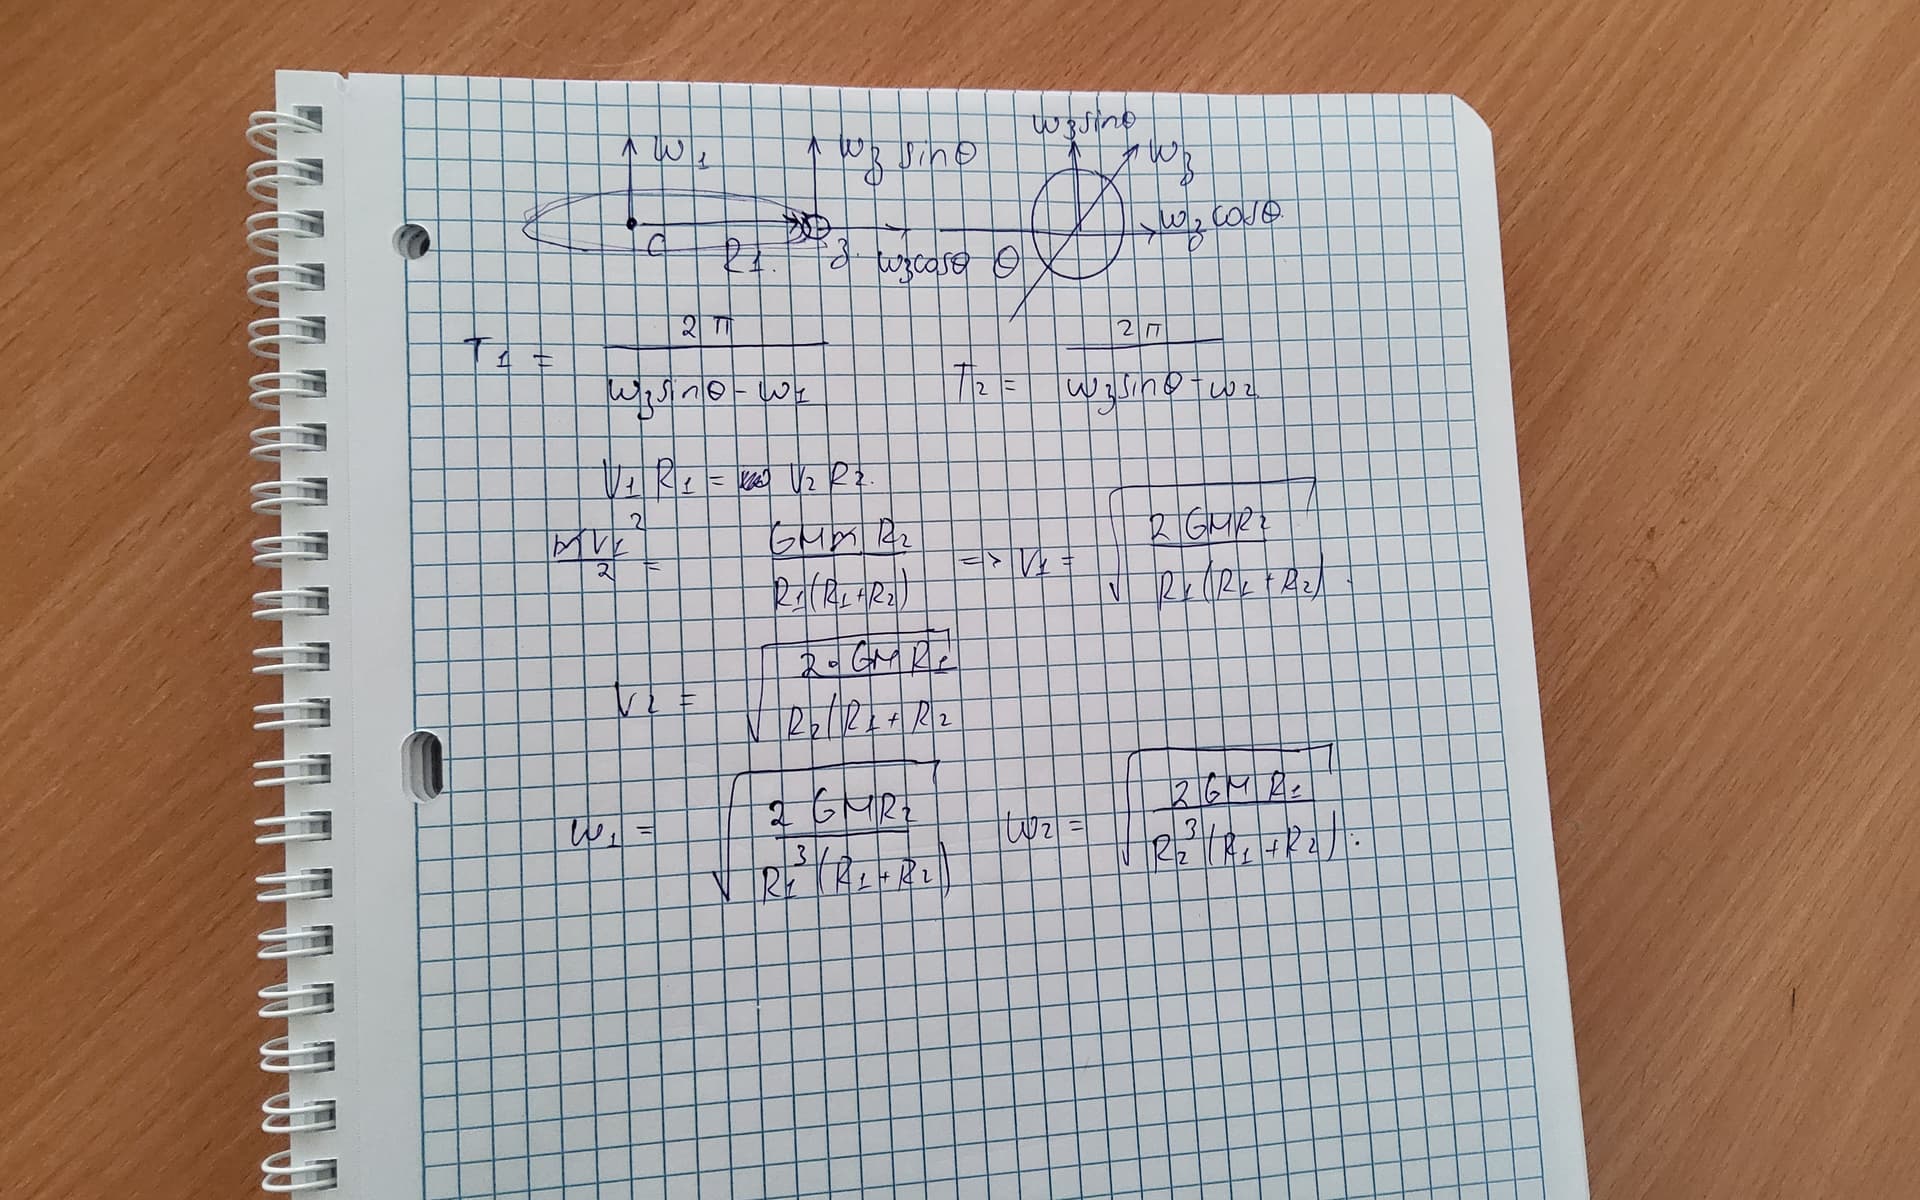 w₁ w₃ sinθ w₃sinθ w₃
C R₁. З. w₃cosθ θ w₃cosθ.
T₁ = 2π / (w₃sinθ - w₁) T₂ = 2π / (w₃sinθ - w₂)
V₁ R₁ = V₂ R₂.
mV₁² / 2 = GMm R₂ / (R₁(R₁+R₂)) => V₁ = √(2GMR₂ / (R₁(R₁+R₂))).
V₂ = √(2·GMR₁ / (R₂(R₁+R₂
w₁ = √(2GMR₂ / (R₁³(R₁+R₂))) w₂ = √(2GMR₁ / (R₂³(R₁+R₂))).